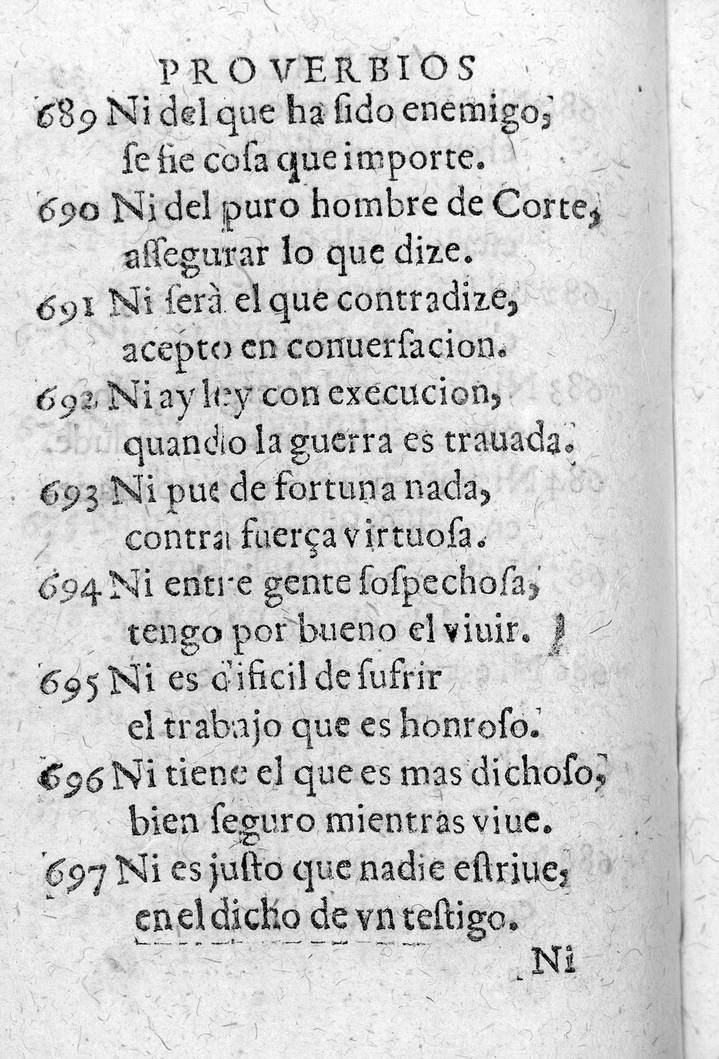 PROVERBIOS
689 Ni del que ha ſido enemigo,
ſe fie coſa que importe.
690 Ni del puro hombre de Corte,
aſſegurar lo que dize.
691 Ni ſerà el que contradize,
acepto en conuerſacion.
692 Ni ay ley con execucion,
quando la guerra es trauada.
693 Ni pue de fortuna nada,
contra fuerça virtuoſa.
694 Ni entre gente ſoſpechoſa,
tengo por bueno el viuir.
695 Ni es dificil de ſufrir
el trabajo que es honroſo.
696 Ni tiene el que es mas dichoſo,
bien ſeguro mientras viue.
697 Ni es juſto que nadie eſtriue,
en el dicho de vn teſtigo.
Ni